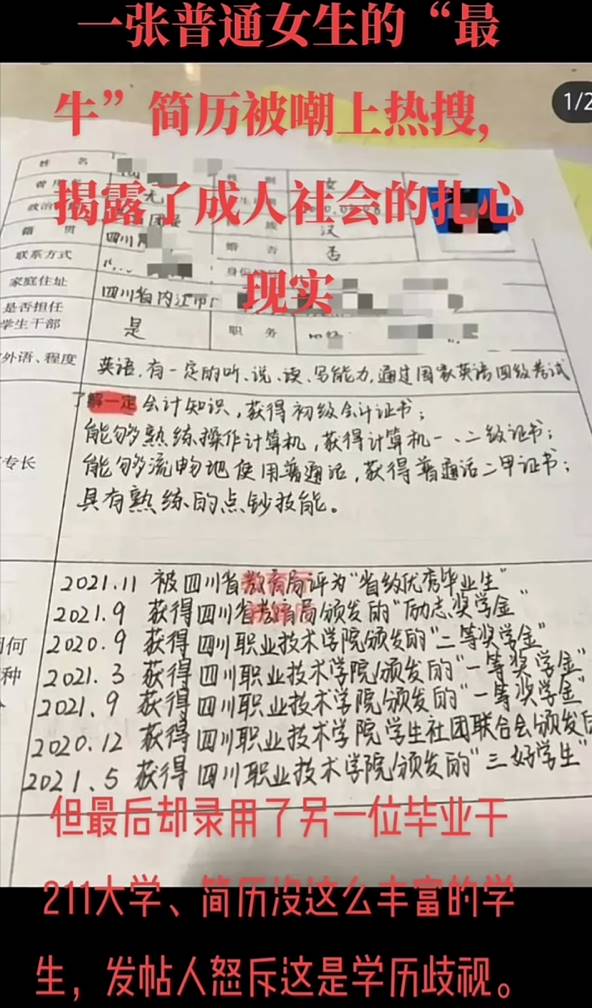 一张普通女生的“最
牛”简历被嘲上热搜，
揭露了成人社会的扎心
现实
1/2
姓 名
性 别
女
政治
汉
籍 贯
四川
婚 否
否
联系方式
家庭住址
四川省内江市
是否担任
学生干部
是
职 务
外语、程度
英语，有一定的听、说、读、写能力，通过国家英语四级考试
了解一定会计知识，获得初级会计证书；
能够熟练操作计算机，获得计算机一、二级证书；
专长
能够流畅地使用普通话，获得普通话二甲证书；
具有熟练的点钞技能。
2021.11 被四川省教育局评为“省级优秀毕业生”
2021.9 获得四川省教育局颁发的“励志奖学金”
何
2020.9 获得四川职业技术学院颁发的“二等奖学金”
种
2021.3 获得四川职业技术学院颁发的“一等奖学金”
2021.9 获得四川职业技术学院颁发的“一等奖学金”
2020.12 获得四川职业技术学院学生社团联合会颁发
2021.5 获得四川职业技术学院颁发的“三好学生”
但最后却录用了另一位毕业于
211大学、简历没这么丰富的学
生，发帖人怒斥这是学历歧视。